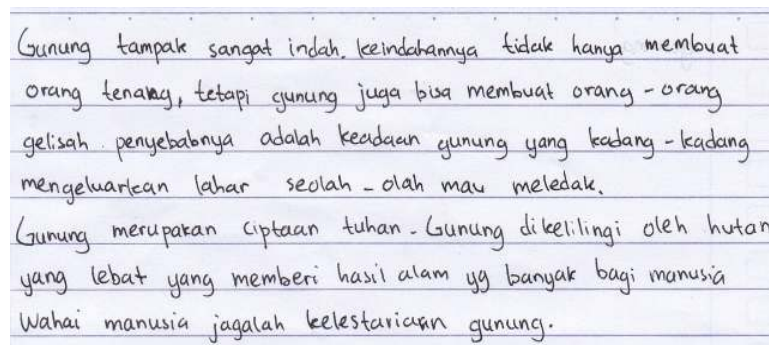 Gunung tampak sangat indah. keindahannya tidak hanya membuat
orang tenang, tetapi gunung juga bisa membuat orang - orang
gelisah. penyebabnya adalah keadaan gunung yang kadang - kadang
mengeluarkan lahar seolah - olah mau meledak.
Gunung merupakan ciptaan tuhan. Gunung dikelilingi oleh hutan
yang lebat yang memberi hasil alam yg banyak bagi manusia
Wahai manusia jagalah kelestarian gunung.